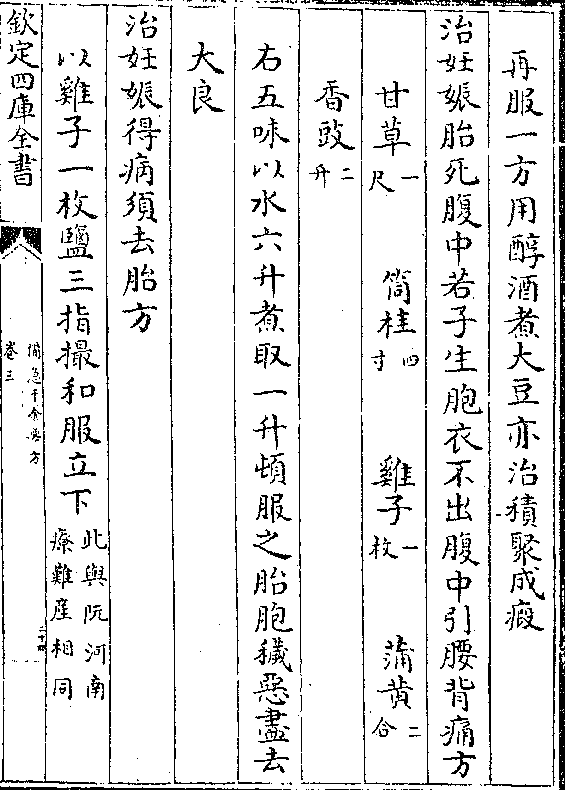 再服一方用醇酒煮大豆亦治積聚成瘕
治妊娠胎死腹中若子生胞衣不出腹中引腰背痛方
甘草一尺 筒桂四寸 雞子一枚 蒲黄二合
香豉二升
右五味以水六升煮取一升頓服之胎胞穢惡盡去
大良
治妊娠得病須去胎方
以雞子一枚鹽三指撮和服立下此與阮河南療難産相同
欽定四庫全書
備急千金要方
卷三
二十四